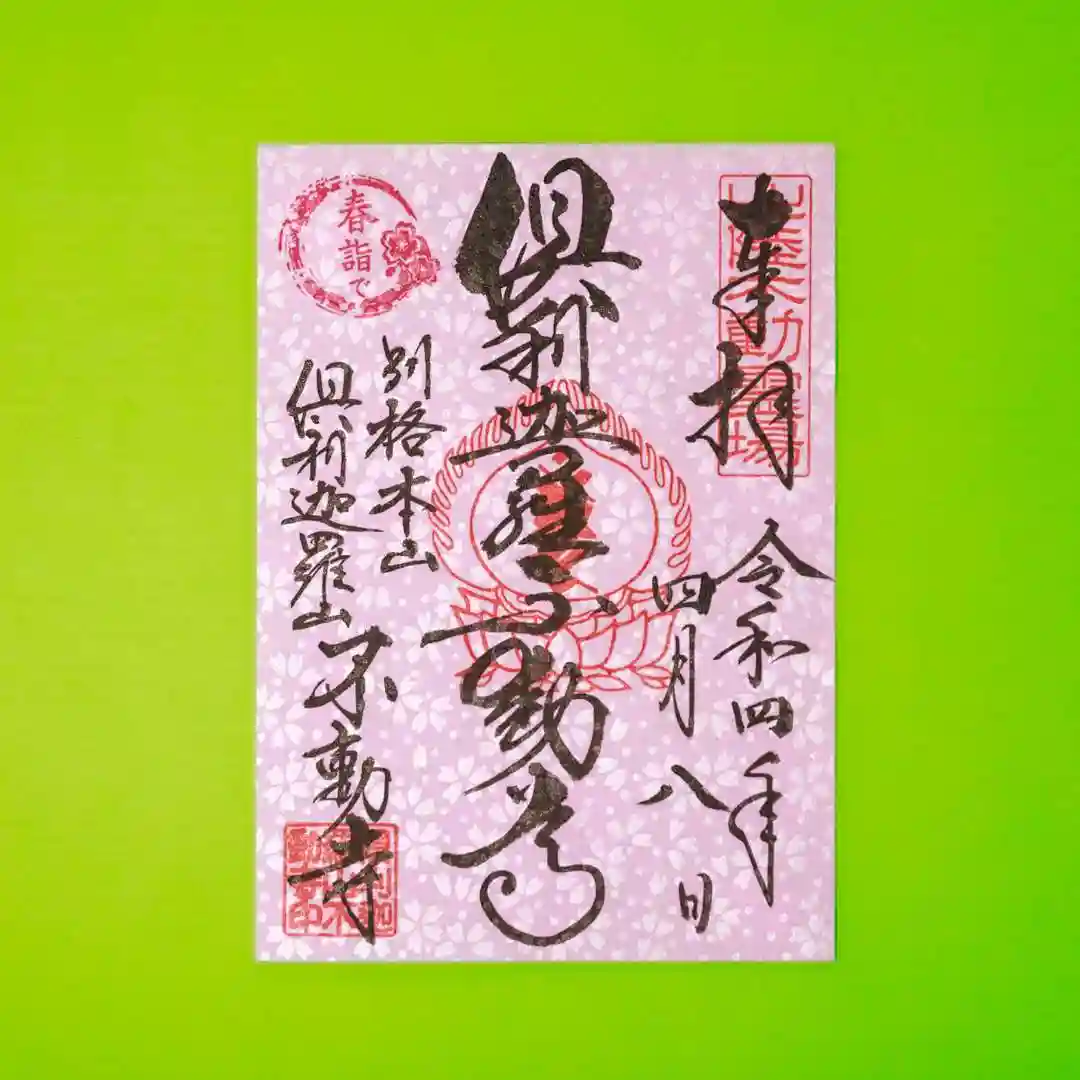 奉拝
令和四年
四月八日
俱利迦羅不動尊
別格本山
俱利迦羅山
不動寺
春詣で